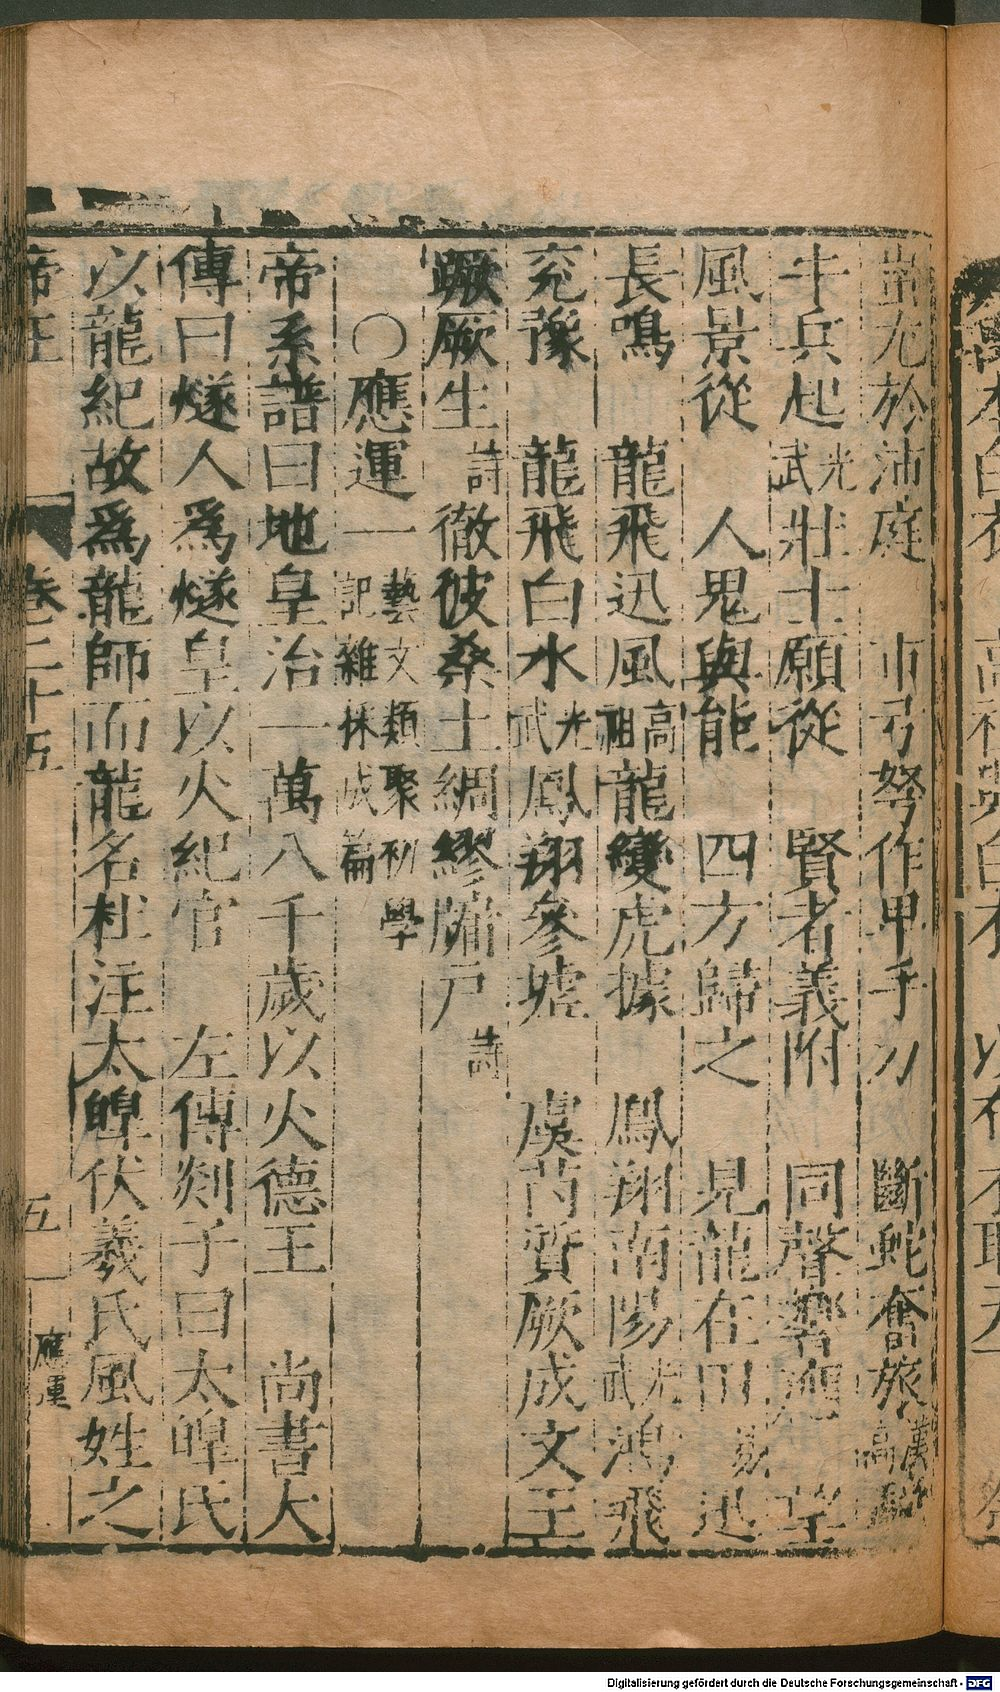 蚩尤於沛庭　市弓弩作甲手刀　斷蛇奮旅漢高
牛兵起光武壯士願從　賢者義附　同聲響應　望
風景從　人鬼與能　四方歸之　見龍在田易迅
長鳴　龍飛迅風高祖龍變虎據　鳳翔南陽光武鴻飛
兖豫　龍飛白水光武鳳翔參墟　虞芮質厥成文王
蹶厥生詩　徹彼桑土綢繆牖戶詩
〇應運一藝文類聚初學記雜採成篇
帝系譜曰地皇治一萬八千歲以火德王　尚書大
傳曰燧人爲燧皇以火紀官　左傳剡子曰太皥氏
以龍紀故爲龍師而龍名杜注太皥伏羲氏風姓之
帝王　卷二十五　五　應運
Digitalisierung gefördert durch die Deutsche Forschungsgemeinschaft - DFG